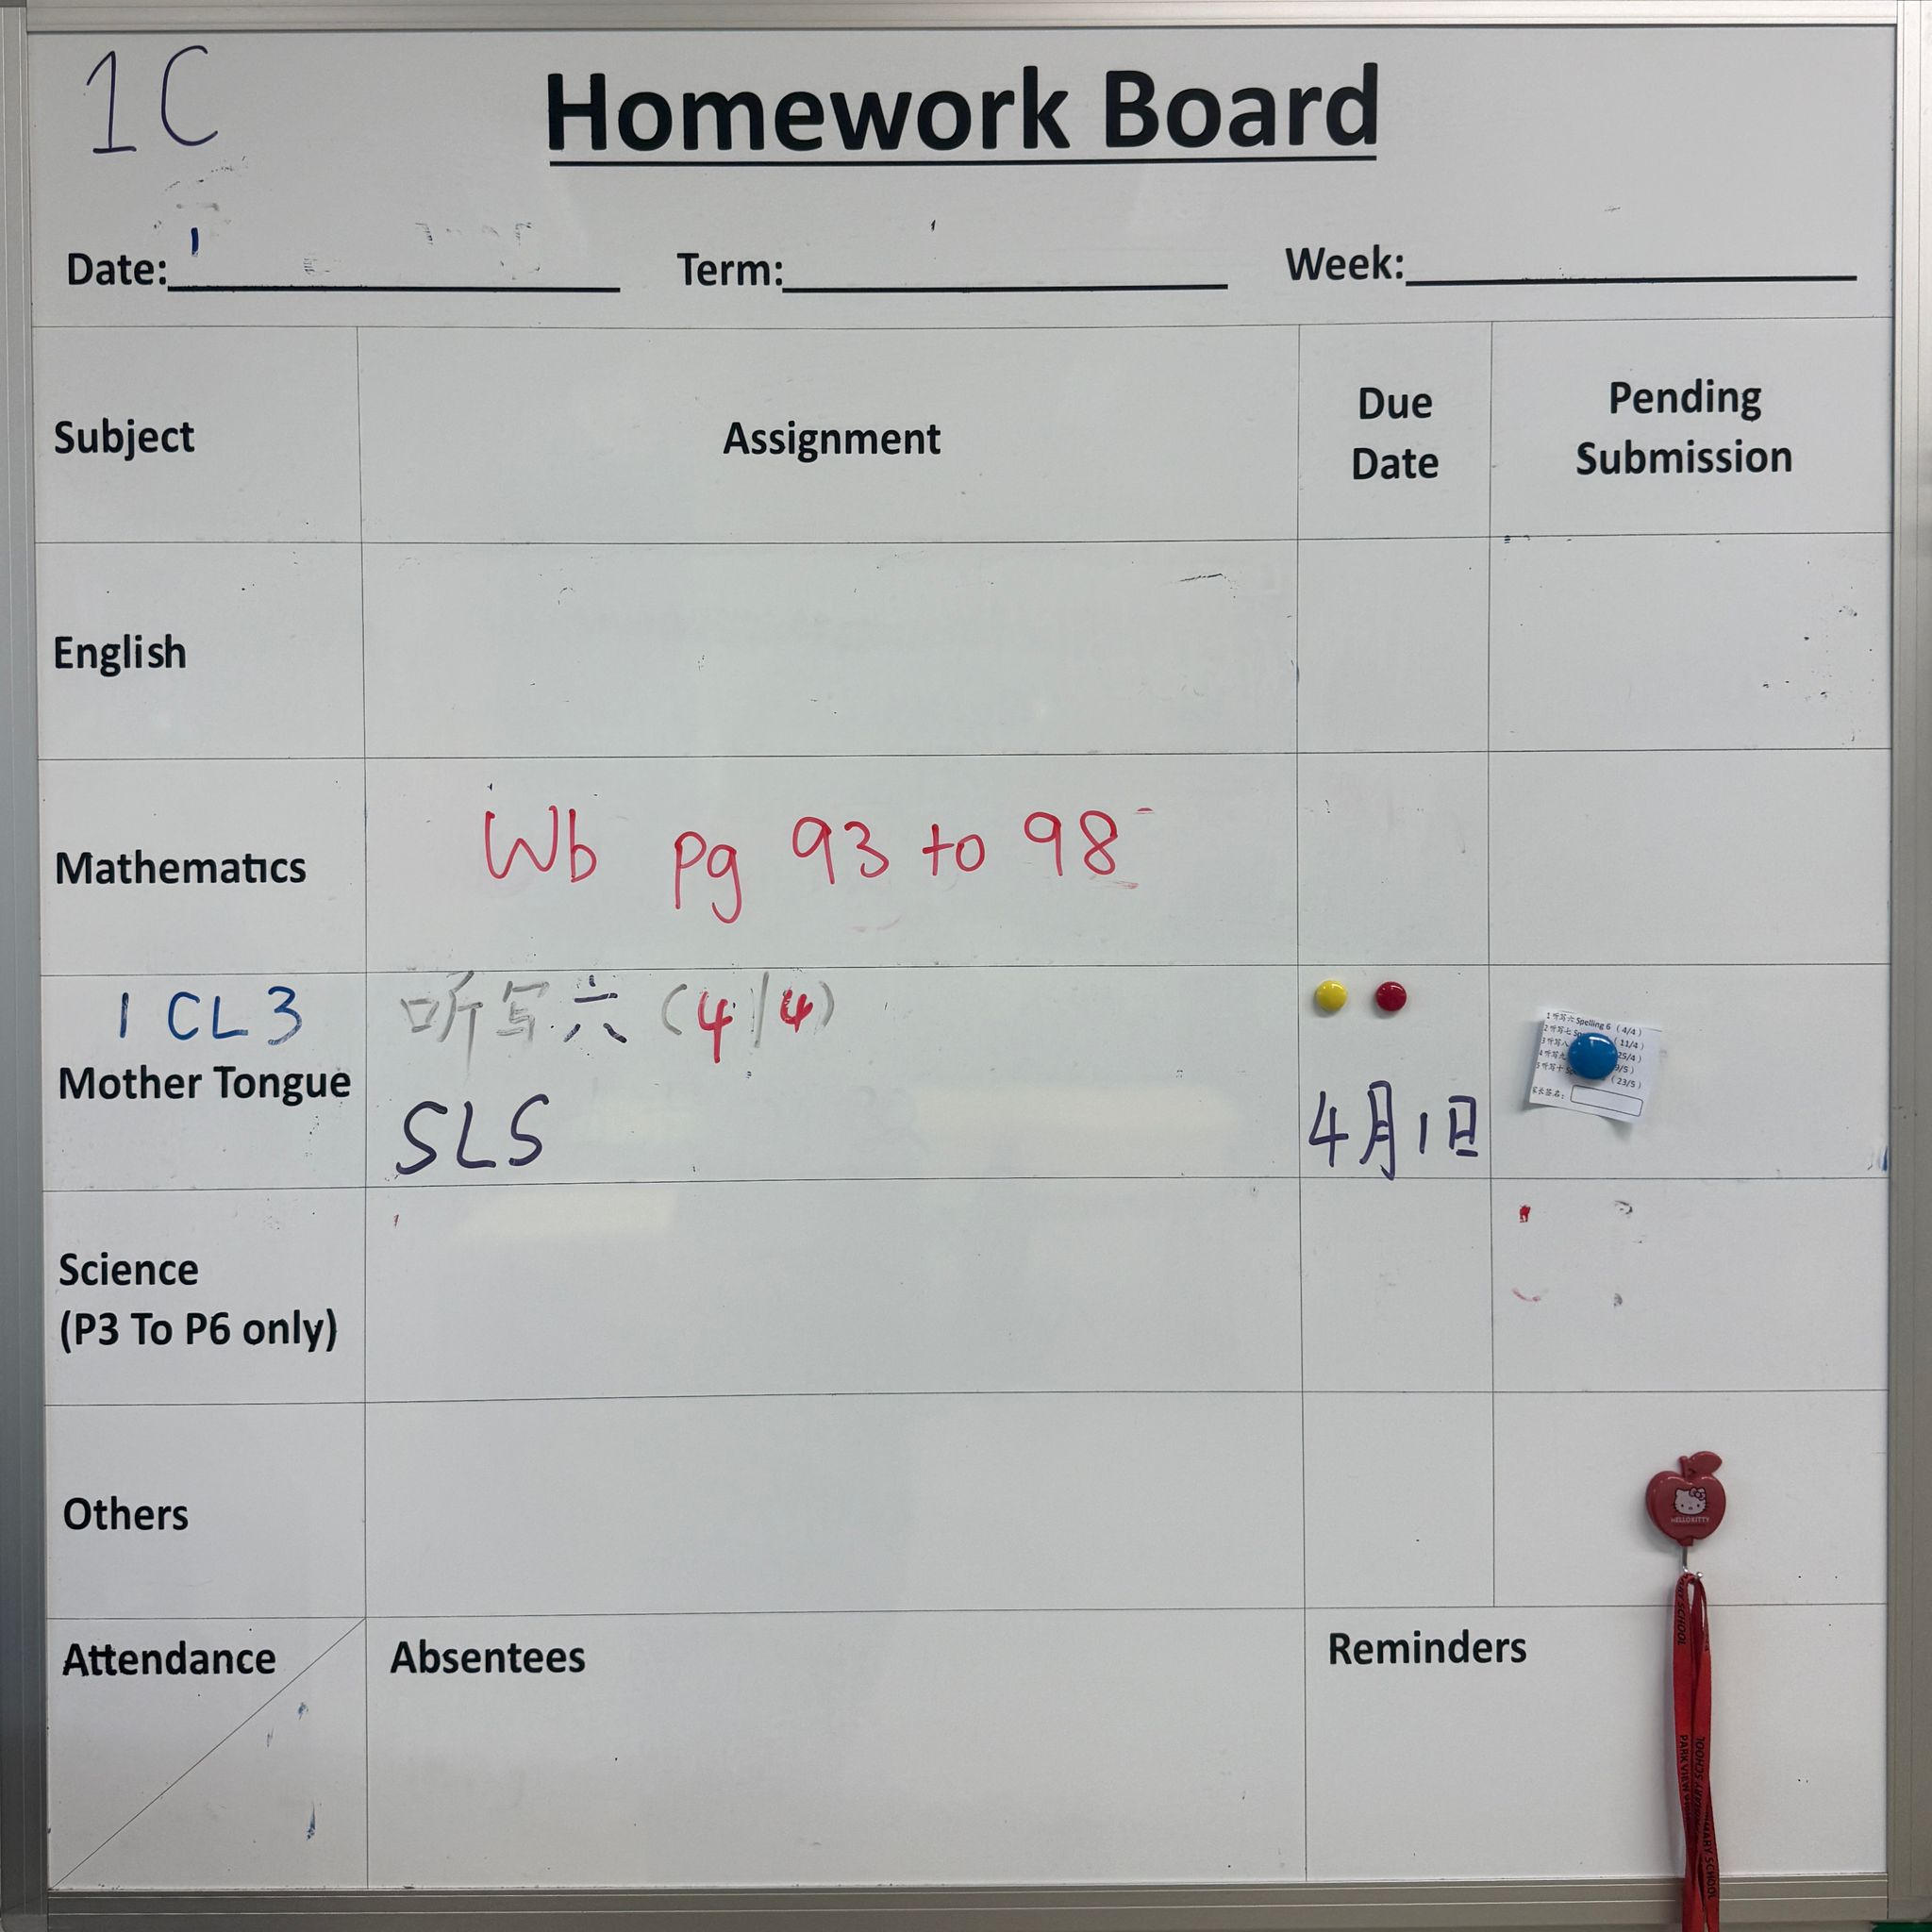 1C
Homework Board
Date: Term: Week:
Subject Assignment Due Date Pending Submission
English
Mathematics Wb pg 93 to 98
1 CL3 Mother Tongue
听写六 (4/4)
SLS 4月1日
1 听写六 Spelling 6 ( 4/4 )
2 听写七 ( 11/4 )
3 听写八 25/4 )
4 听写九 9/5 )
5 听写十 ( 23/5 )
家长签名:
Science
(P3 To P6 only)
Others
HELLO KITTY
Attendance Absentees Reminders
PARK VIEW PRIMARY SCHOOL